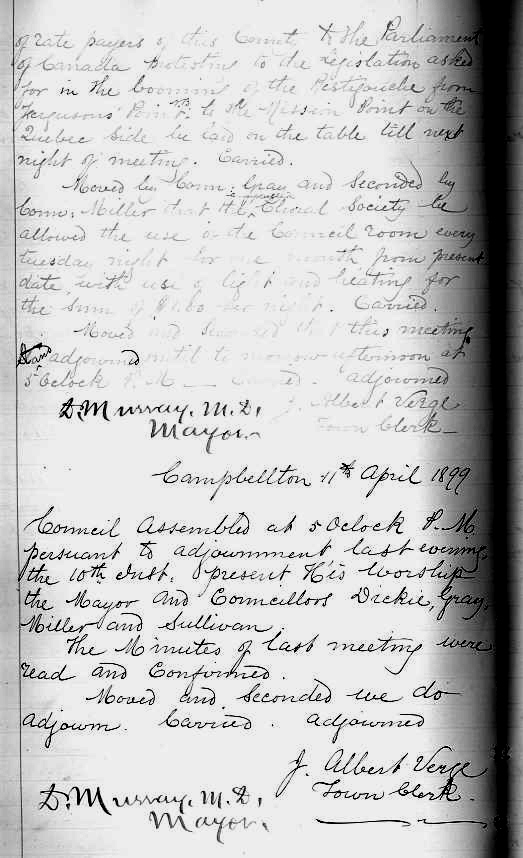 of rate payers of this County to the Parliament
of Canada protesting to the legislation asked
for in the booming of the Restigouche from
Fergusons Point N.B. to the Mission Point on the
Quebec side be laid on the table till next
night of meeting. Carried.
Moved by Coun: Gray and Seconded by
Coun: Miller that the Campbellton Choral Society be
allowed the use of the Council room every
tuesday night for one month from present
date with use of light and heating for
the sum of $1.00 per night. Carried.
Moved and Seconded that this meeting
Stand adjourned until to morrow afternoon at
5 Oclock P.M — Carried. adjourned
J. Albert Verge
D. Murray, M.D,
Mayor.
Town Clerk —
Campbellton 11th April 1899
Council Assembled at 5 Oclock P.M
persuant to adjournment last evening
the 10th Inst, present His Worship
the Mayor and Councillors Dickie, Gray,
Miller and Sullivan.
The Minutes of last meeting were
read and Confirmed.
Moved and Seconded we do
adjourn. Carried. adjourned
J. Albert Verge
Town Clerk.
D. Murray, M.D,
Mayor.